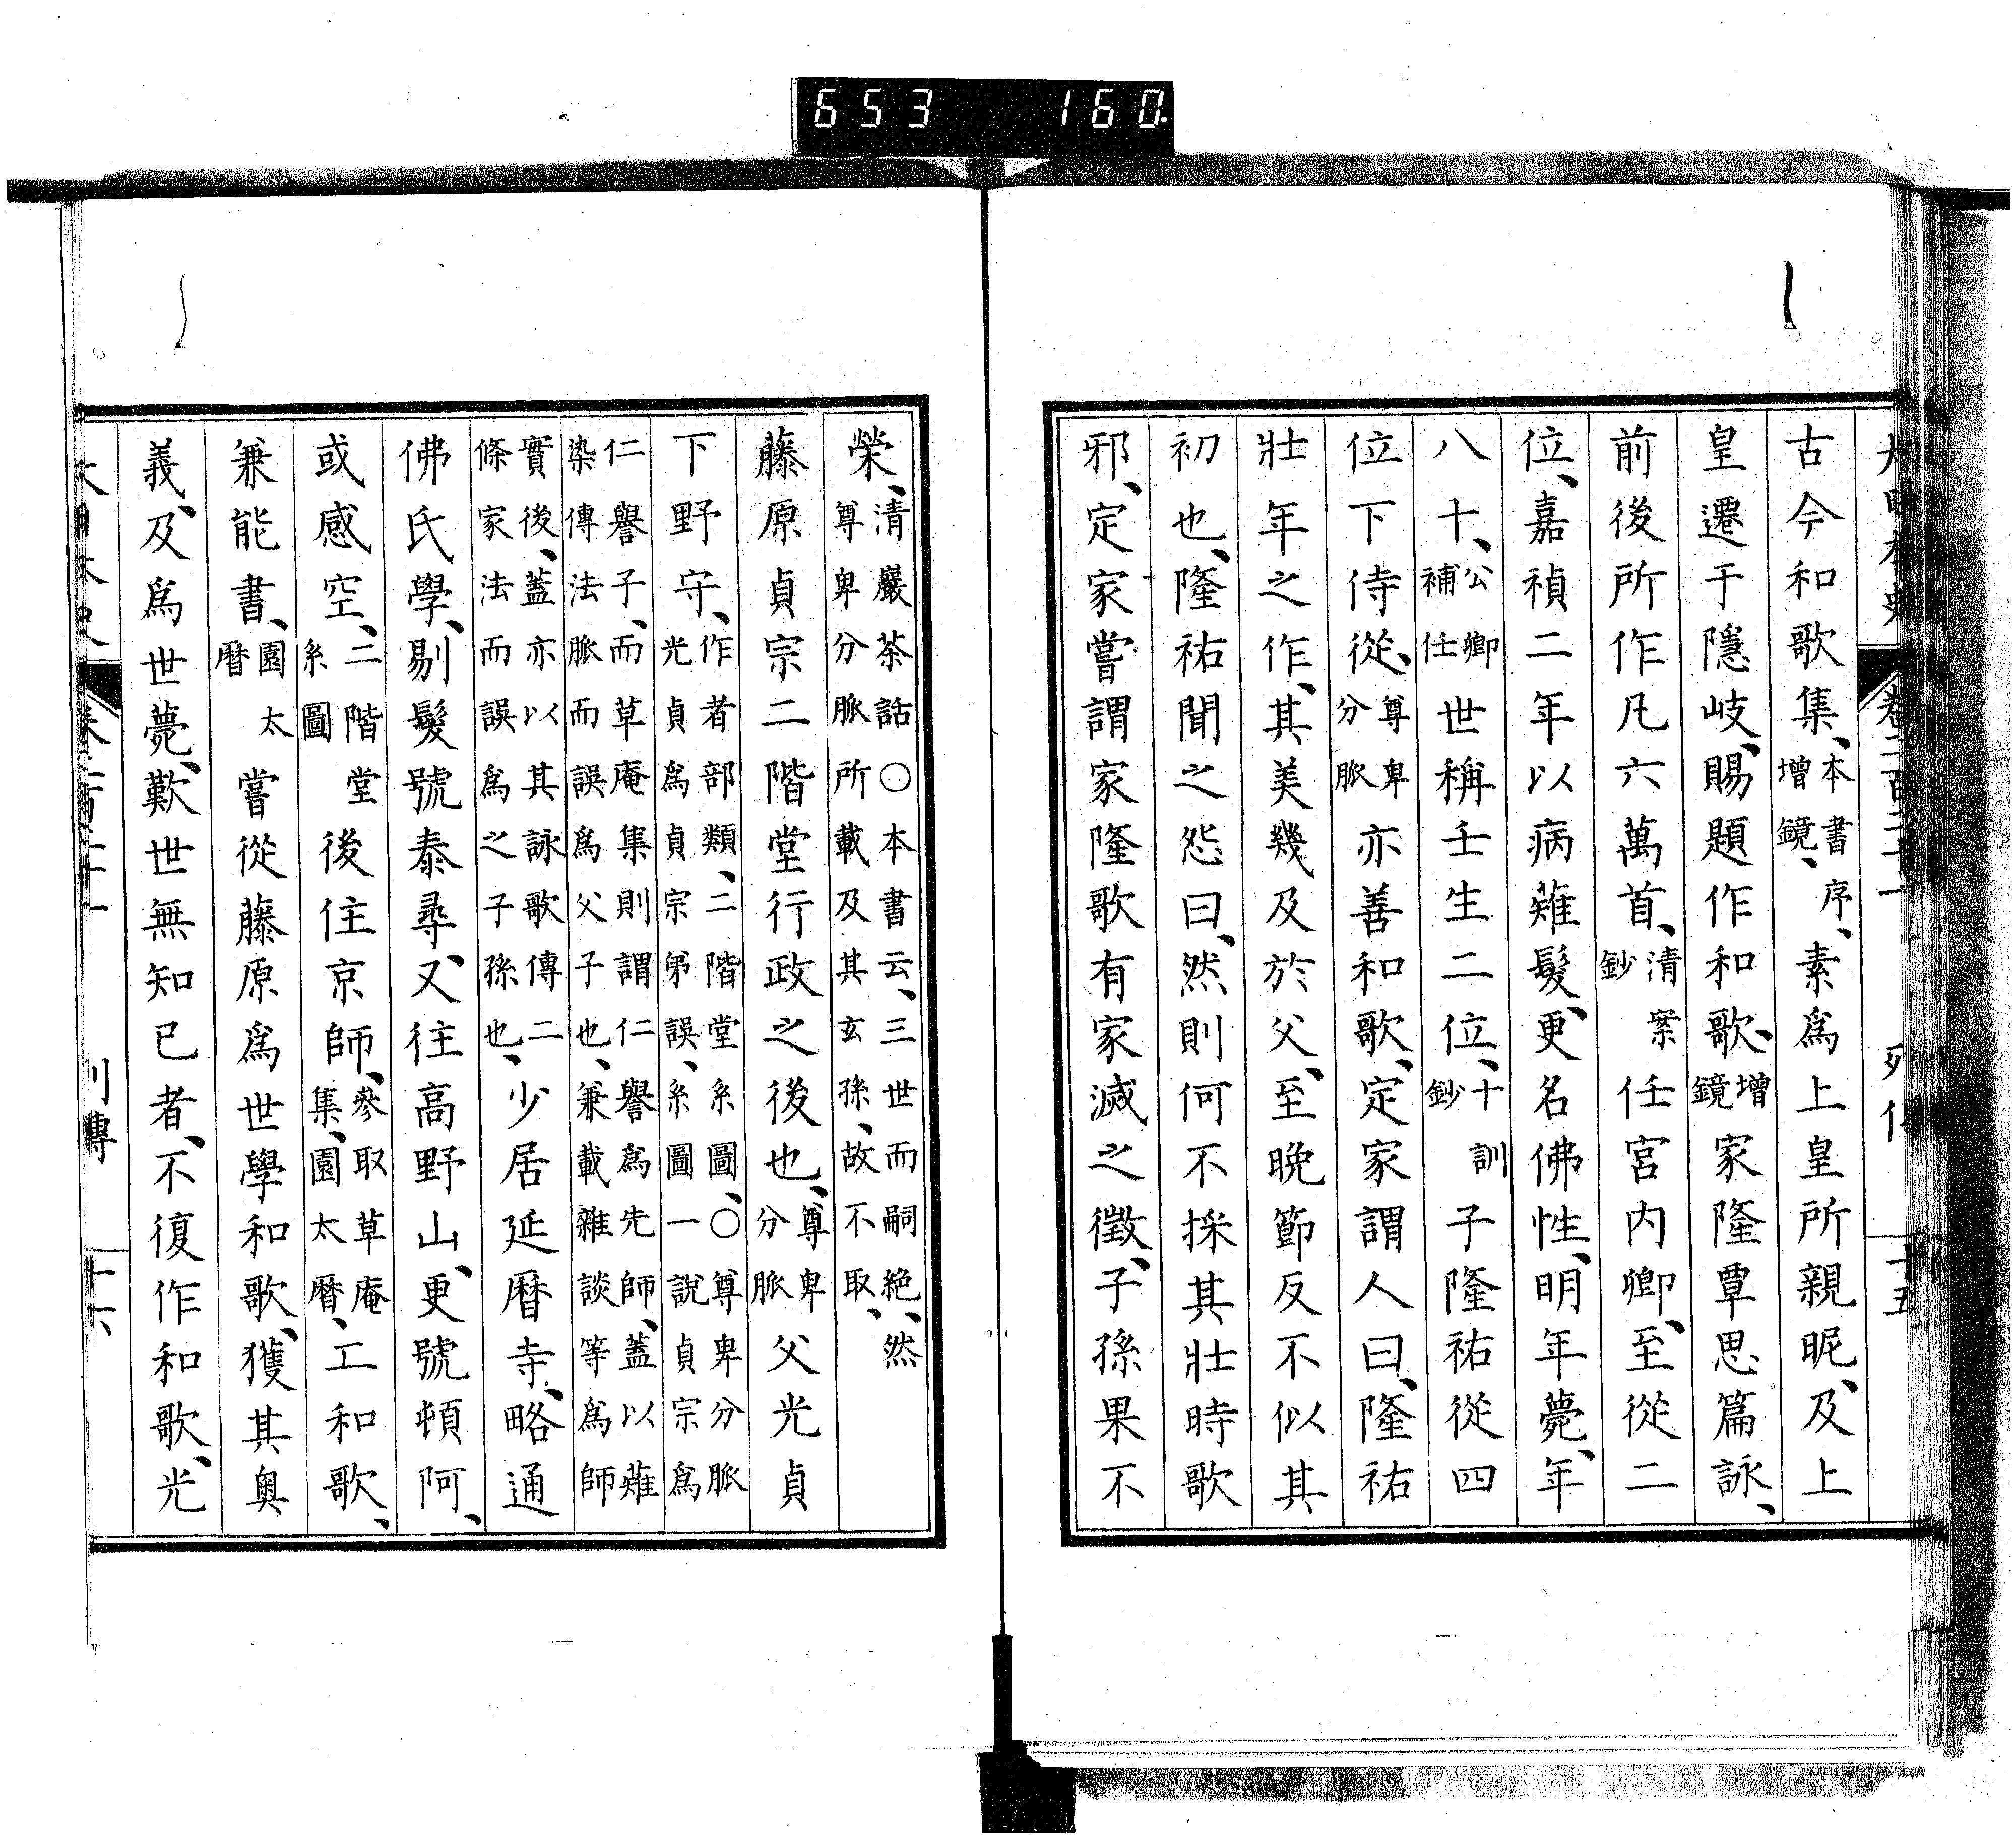 653 160
古今和歌集、本書序、增鏡、素爲上皇所親昵、及上
皇遷于隱岐、賜題作和歌、增鏡家隆覃思篇詠、
前後所作凡六萬首、清案鈔任宮内卿、至從二
位、嘉禎二年以病薙髮、更名佛性、明年薨、年
八十、公卿補任世稱壬生二位、十訓鈔子隆祐從四
位下侍從、尊卑分脈亦善和歌、定家謂人曰、隆祐
壯年之作、其美幾及於父、至晚節反不似其
初也、隆祐聞之怨曰、然則何不採其壯時歌
邪、定家嘗謂家隆歌有家滅之徵、子孫果不
榮、清巖茶話○本書云、三世而嗣絶、然尊卑分脈所載及其玄孫、故不取、
藤原貞宗二階堂行政之後也、尊卑分脈父光貞
下野守、作者部類、二階堂系圖、○尊卑分脈光貞爲貞宗弟誤、系圖一說貞宗爲
仁譽子、而草庵集則謂仁譽爲先師、蓋以薙染傳法脈而誤爲父子也、兼載雜談等爲師
實後、蓋亦以其詠歌傳二條家法而誤爲之子孫也、少居延曆寺、略通
佛氏學、剔髮號泰尋、又往高野山、更號頓阿、
或感空、二階堂系圖後住京師、參取草庵集、園太曆、工和歌、
兼能書、園太曆嘗從藤原爲世學和歌、獲其奧
義、及爲世薨、歎世無知已者、不復作和歌、光